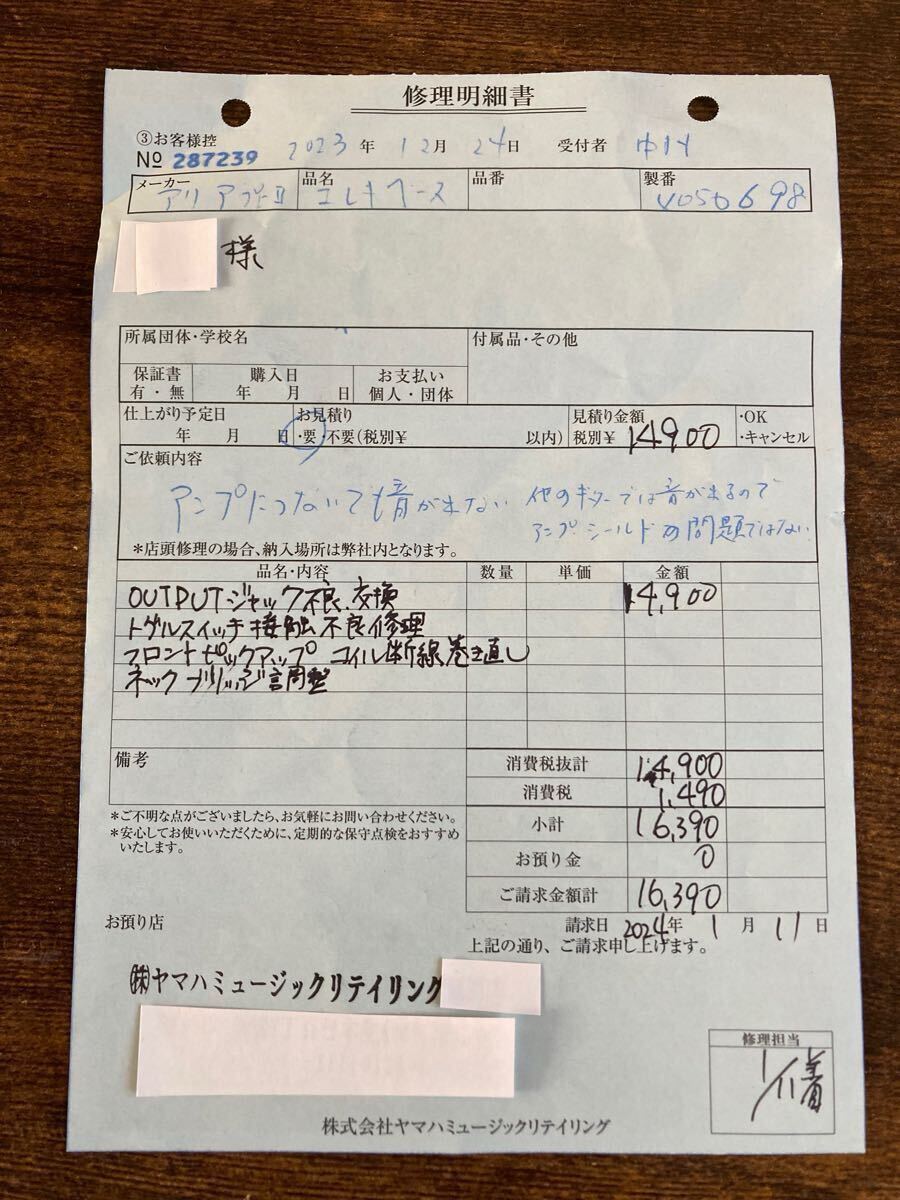 修理明細書
③お客様控
№ 287239 2023年 12月 24日 受付者 中村
メーカー 品名 品番 製番
アリアプロⅡ エレキベース
様
所属団体・学校名 付属品・その他
保証書 購入日 お支払い
有・無 年 月 日 個人・団体
仕上がり予定日 お見積り 見積り金額 ・OK
年 月 日 ・要・不要(税別¥ 以内) 税別¥ 14,900 ・キャンセル
ご依頼内容
アンプにつないでも音が出ない 他のギターでは音が出るので
アンプ・シールドの問題ではない
*店頭修理の場合、納入場所は弊社内となります。
品名・内容 数量 単価 金額
OUTPUTジャック不良、交換 14,900
トグルスイッチ接触不良修理
フロントピックアップ コイル断線巻き直し
ネック ブリッジ調整
備考 消費税抜計 14,900
消費税 1,490
*ご不明な点がございましたら、お気軽にお問い合わせください。
*安心してお使いいただくために、定期的な保守点検をおすすめ
いたします。
小計 16,390
お預り金 0
ご請求金額計 16,390
お預り店 請求日 2024年 1月 11日
上記の通り、ご請求申し上げます。
㈱ヤマハミュージックリテイリング
修理担当
株式会社ヤマハミュージックリテイリング